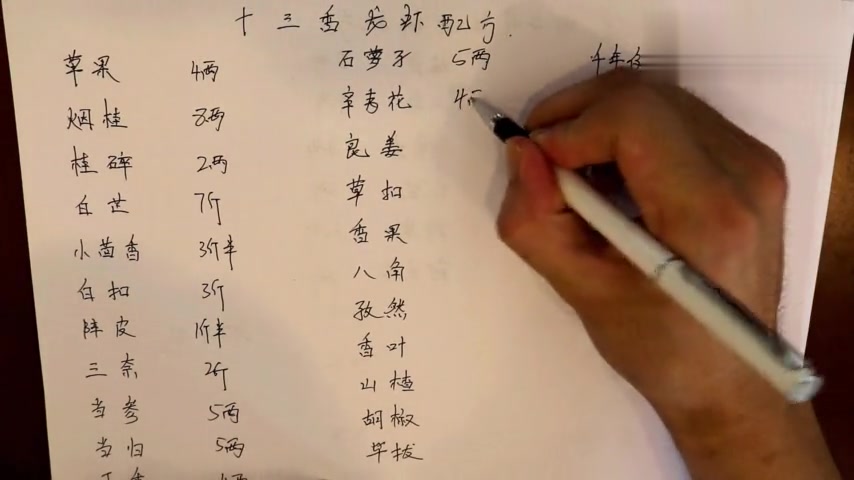 十三香龙虾配方.
草果 4两
烟桂 8两
桂碎 2两
白芷 7斤
小茴香 3斤半
白扣 3斤
陈皮 1斤半
三奈 2斤
当参 5两
当归 5两
石萝子 5两
辛夷花 4
良姜
草扣
香果
八角
孜然
香叶
山楂
胡椒
毕拔
千年